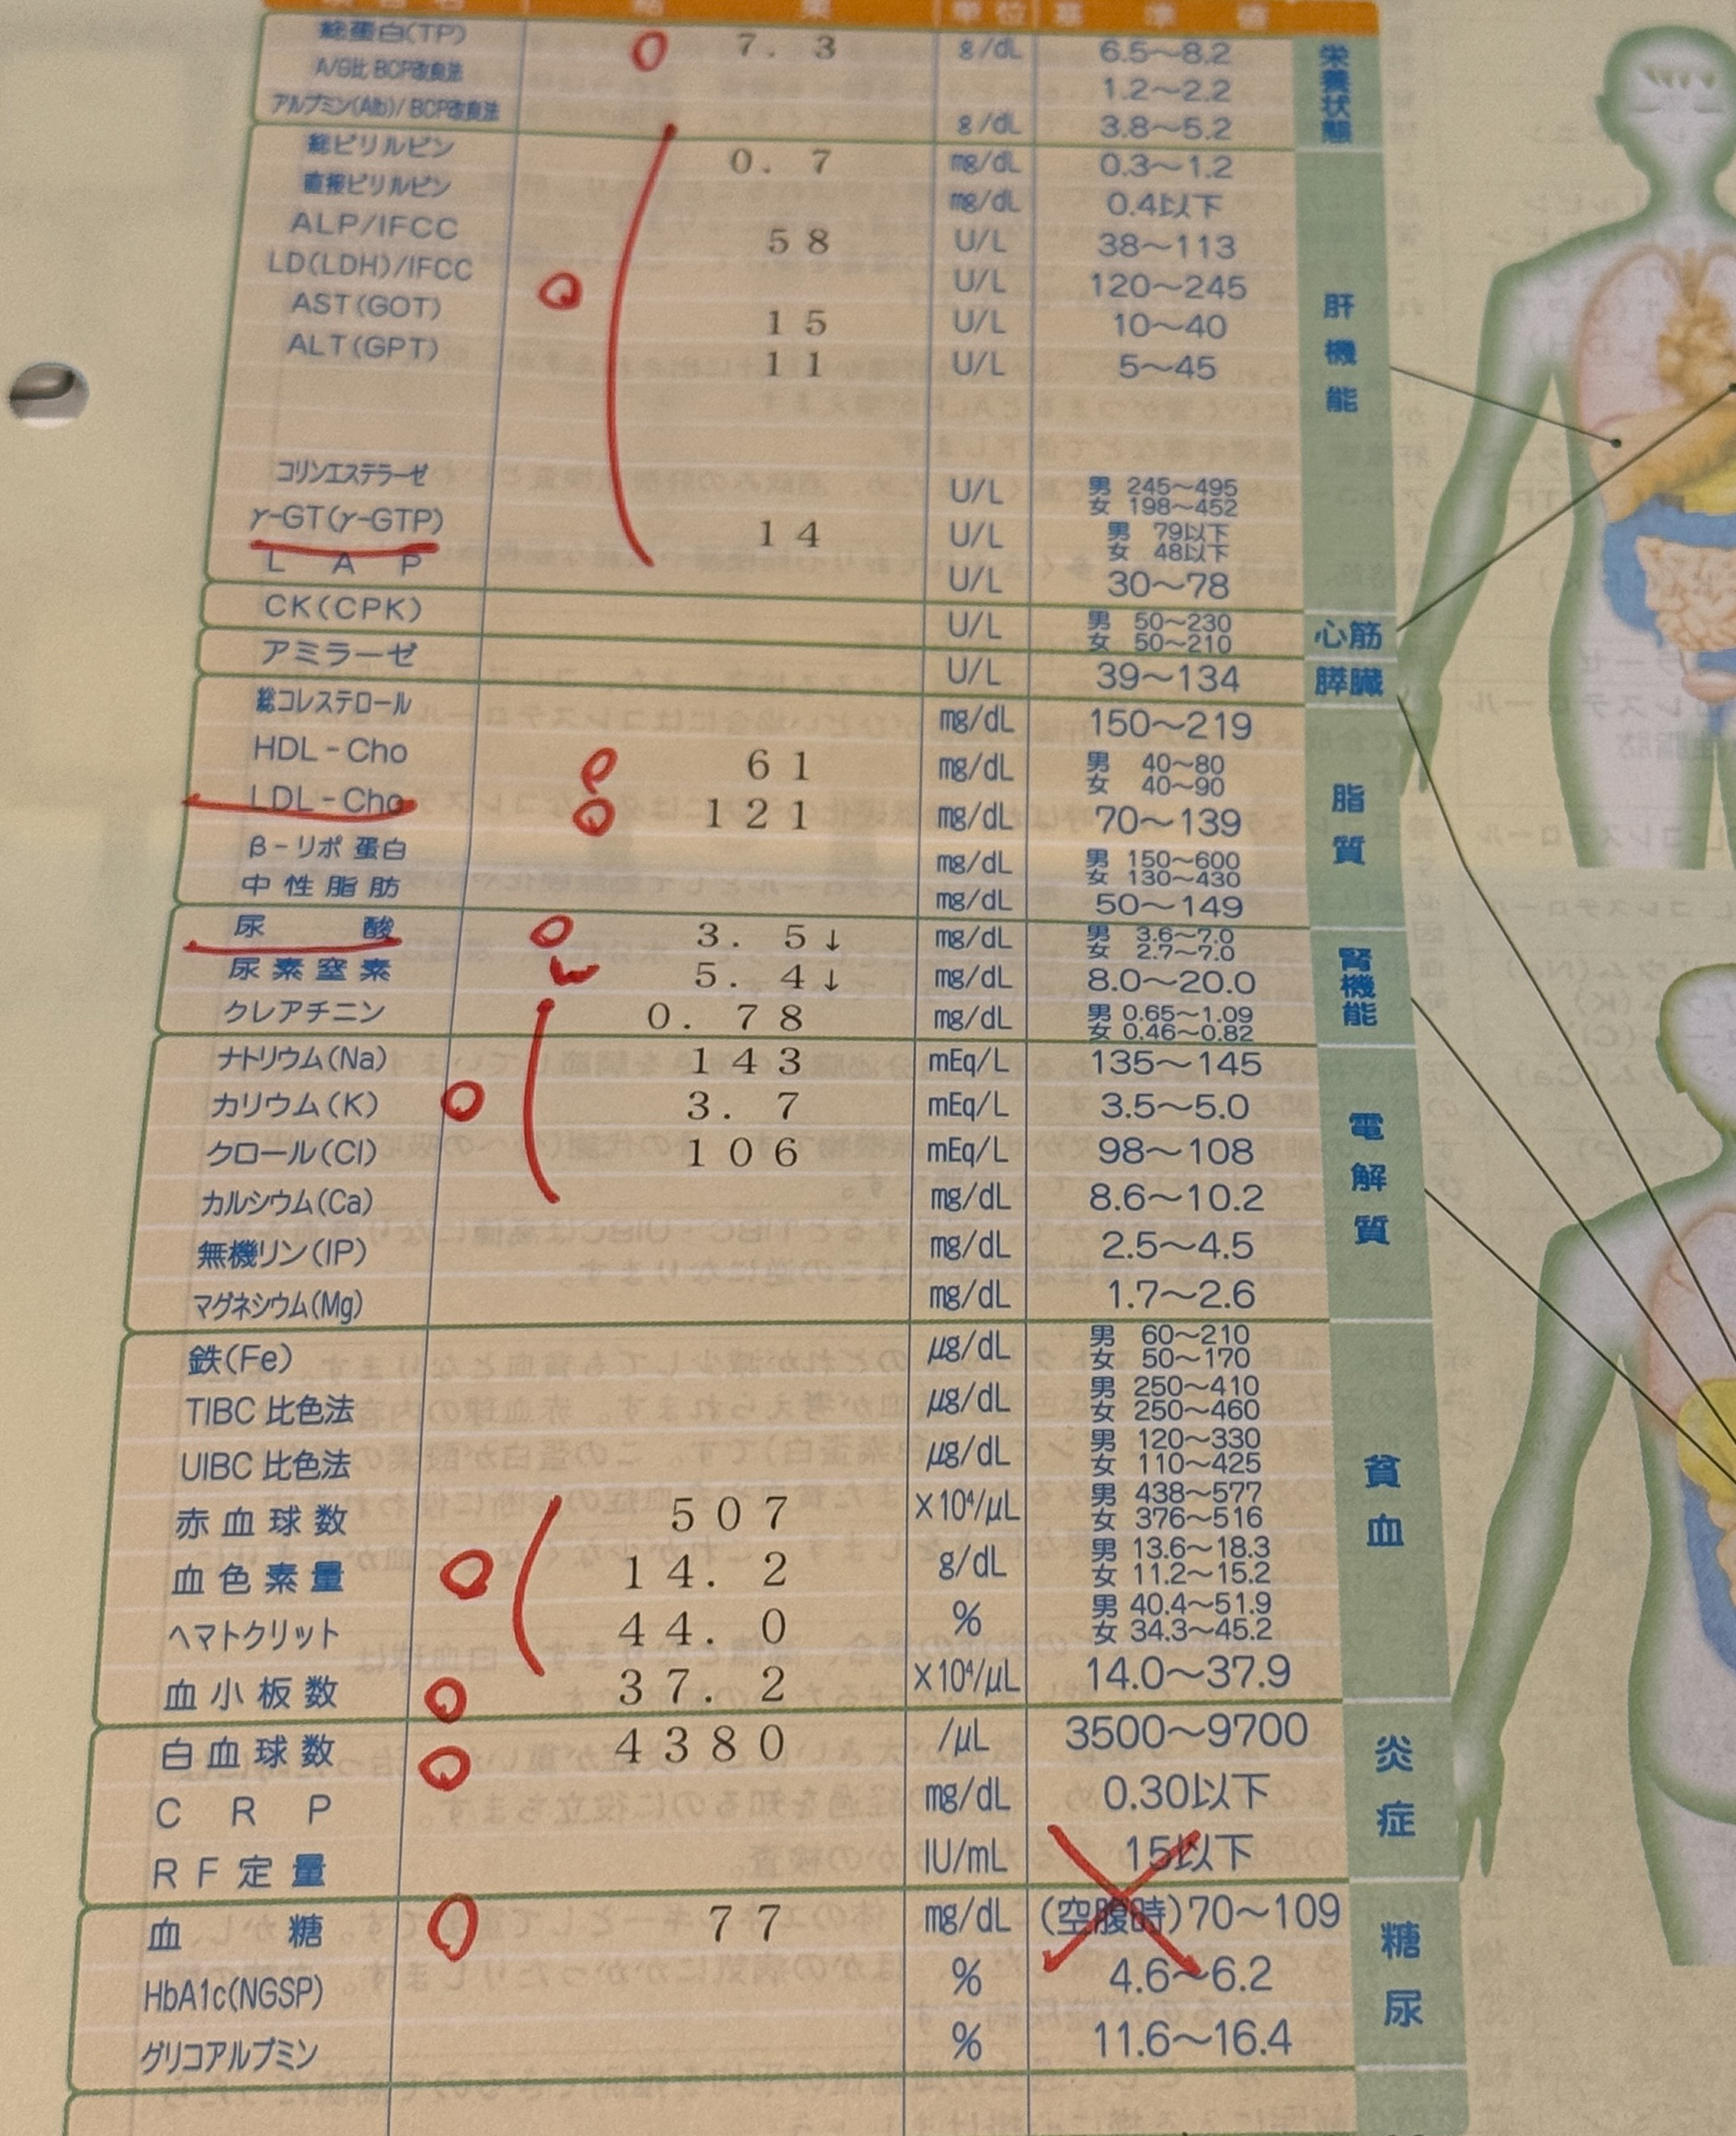 項目名 結果 単位 基準値
総蛋白(TP) 7. 3 g/dL 6.5〜8.2 栄養状態
A/G比 BCP改良法 1.2〜2.2
アルブミン(Alb)/BCP改良法 g/dL 3.8〜5.2
総ビリルビン 0. 7 mg/dL 0.3〜1.2 肝機能
直接ビリルビン mg/dL 0.4以下
ALP/IFCC 58 U/L 38〜113
LD(LDH)/IFCC U/L 120〜245
AST(GOT) 15 U/L 10〜40
ALT(GPT) 11 U/L 5〜45
コリンエステラーゼ U/L 男 245〜495 女 198〜452
γ-GT(γ-GTP) 14 U/L 男 79以下 女 48以下
L A P U/L 30〜78
CK(CPK) U/L 男 50〜230 女 50〜210 心筋
アミラーゼ U/L 39〜134 膵臓
総コレステロール mg/dL 150〜219 脂質
HDL-Cho 61 mg/dL 男 40〜80 女 40〜90
LDL-Cho 121 mg/dL 70〜139
β-リポ蛋白 mg/dL 男 150〜600 女 130〜430
中性脂肪 mg/dL 50〜149
尿酸 3. 5↓ mg/dL 男 3.6〜7.0 女 2.7〜7.0 腎機能
尿素窒素 5. 4↓ mg/dL 8.0〜20.0
クレアチニン 0. 78 mg/dL 男 0.65〜1.09 女 0.46〜0.82
ナトリウム(Na) 143 mEq/L 135〜145 電解質
カリウム(K) 3. 7 mEq/L 3.5〜5.0
クロール(Cl) 106 mEq/L 98〜108
カルシウム(Ca) mg/dL 8.6〜10.2
無機リン(IP) mg/dL 2.5〜4.5
マグネシウム(Mg) mg/dL 1.7〜2.6
鉄(Fe) μg/dL 男 60〜210 女 50〜170 貧血
TIBC 比色法 μg/dL 男 250〜410 女 250〜460
UIBC 比色法 μg/dL 男 120〜330 女 110〜425
赤血球数 507 ×10⁴/μL 男 438〜577 女 376〜516
血色素量 14. 2 g/dL 男 13.6〜18.3 女 11.2〜15.2
ヘマトクリット 44. 0 % 男 40.4〜51.9 女 34.3〜45.2
血小板数 37. 2 ×10⁴/μL 14.0〜37.9
白血球数 4380 /μL 3500〜9700 炎症
C R P mg/dL 0.30以下
RF定量 IU/mL 15以下
血糖 77 mg/dL (空腹時)70〜109 糖尿
HbA1c(NGSP) % 4.6〜6.2
グリコアルブミン % 11.6〜16.4